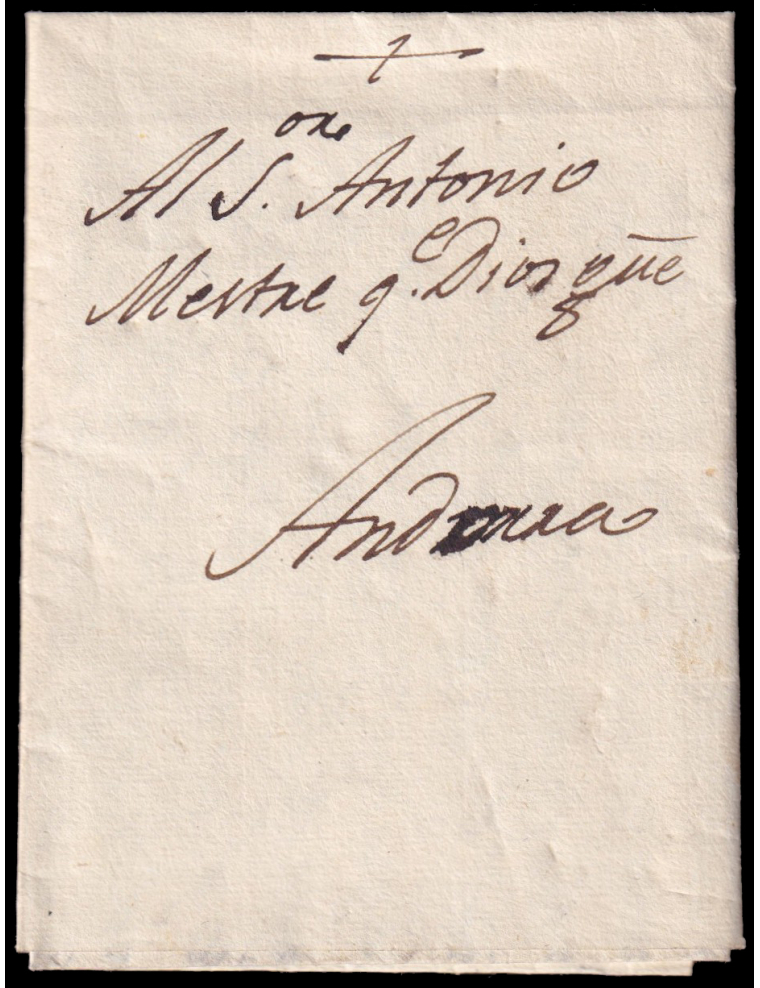 +
Al S.or Antonio
Mestre q.e Dios gūe
Andorra